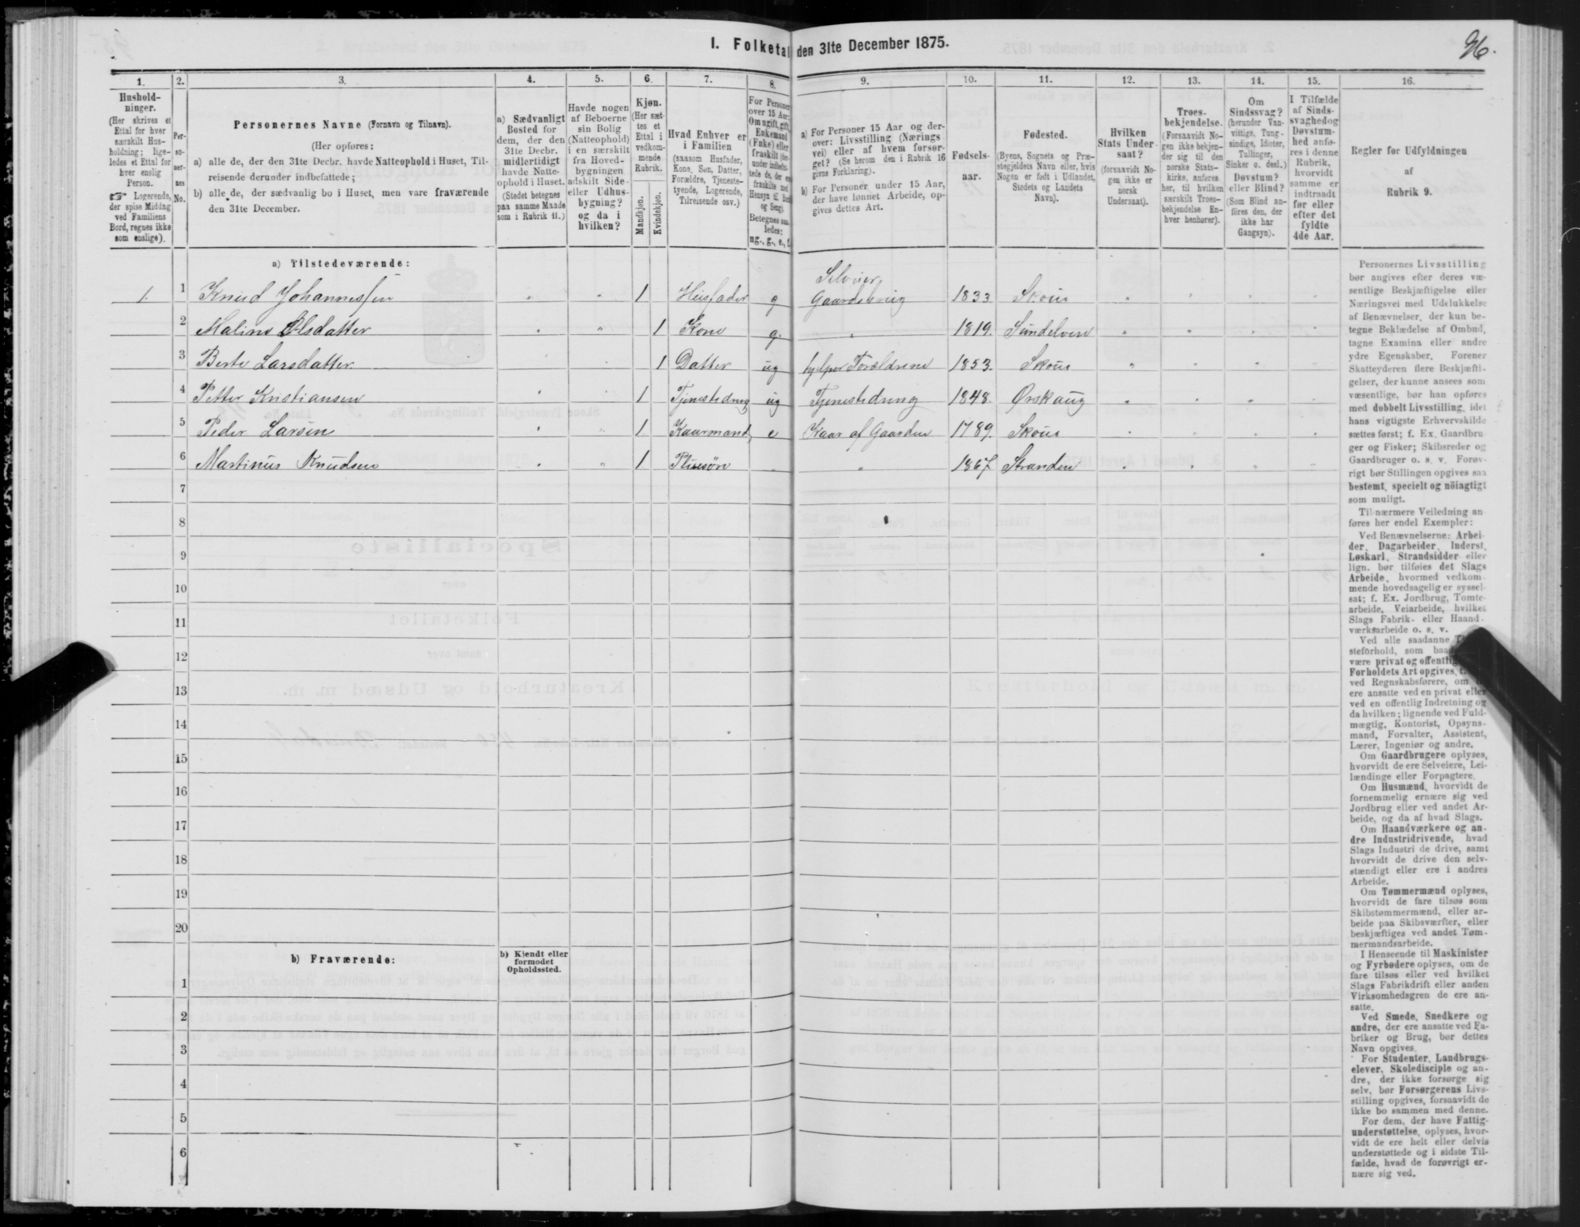 I. Folketal den 31te December 1875.
96.
1. 2. 3. 4. 5. 6. 7. 8. 9. 10. 11. 12. 13. 14. 15. 16.
Hushold-
ninger.
(Her skrives et
Ettal for hver
særskilt Hus-
holdning; lige-
ledes et Ettal for
hver enslig
Person.
☞ Logerende,
der spise Middag
ved Familiens
Bord, regnes ikke
som enslige).
Per-
so-
ner-
nes
No.
Personernes Navne (Fornavn og Tilnavn).
(Her opføres:
a) alle de, der den 31te Decbr. havde Natteophold i Huset, Til-
reisende derunder indbefattede;
b) alle de, der sædvanlig bo i Huset, men vare fraværende
den 31te December.
a) Sædvanligt
Bosted for
dem, der den
31te Decbr.
midlertidigt
havde Natte-
ophold i Huset.
(Stedet betegnes
paa samme Maade
som i Rubrik 11.)
Havde nogen
af Beboerne
sin Bolig
(Natteophold)
i en særskilt
fra Hoved-
bygningen
adskilt Side-
eller Udhus-
bygning?
og da i
hvilken?
Kjøn.
(Her sæt-
tes et
Ettal i
vedkom-
mende
Rubrik.
Mandkjøn.
Kvindekjøn.
Hvad Enhver er
i Familien
(saasom Husfader,
Kone, Søn, Datter,
Forældre, Tjeneste-
tyende, Logerende,
Tilreisende osv.)
For Personer
over 15 Aar:
Om ugift, gift,
Enkemand
(Enke) eller
fraskilt
og Seng).
Betegnes saa-
ledes:
ug., g., e., f.
a) For Personer 15 Aar og der-
over: Livsstilling (Nærings-
vei) eller af hvem forsør-
get? (Se herom den i Rubrik 16
givne Forklaring).
b) For Personer under 15 Aar,
der have lønnet Arbeide, op-
gives dettes Art.
Fødsels-
aar.
Fødested.
(Byens, Sognets og Præ-
stegjeldets Navn eller, hvis
Nogen er født i Udlandet,
Stedets og Landets
Navn).
Hvilken
Stats Under-
saat?
(forsaavidt No-
gen ikke er
norsk
Undersaat).
Troes-
bekjendelse.
(Forsaavidt No-
gen ikke bekjen-
der sig til den
norske Stats-
kirke, anføres
her, til hvilken
særskilt Troes-
bekjendelse En-
hver henhører).
Om
Sindssvag?
(herunder Van-
vittige, Tung-
sindige, Idioter,
Tullinger,
Sinker o. desl.)
Døvstum?
eller Blind?
(Som Blind an-
føres den, der
ikke har
Gangsyn).
I Tilfælde
af Sinds-
svaghed og
Døvstum-
hed anfø-
res i denne
Rubrik,
hvorvidt
samme er
indtraadt
før eller
efter det
fyldte
4de Aar.
Regler før Udfyldningen
af
Rubrik 9.
a) Tilstedeværende:
1. 1 Knud Johannessen " " 1 Husfader g Selveier, Gaardsbrug 1833. Skous " " " "
2 Malins Olsdatter " " 1 Kone g. " 1819. Sundelven " " " "
3 Berte Larsdatter " " 1 Datter ug hjelper Forældrene 1853. Skous " " " "
4 Petter Kristiansen " " 1 Tjenestedreng ug Tjenestedreng 1848. Ørskaug " " " "
5 Peder Larsen " " 1 Kaarmand e Kaar af Gaarden 1789. Skous " " " "
6 Martinus Knudsen " " 1 Pleiesøn " 1867. Stranden " " " "
7
8
9
10
11
12
13
14
15
16
17
18
19
20
b) Fraværende:
b) Kjendt eller
formodet
Opholdssted.
1
2
3
4
5
6
Personernes Livsstilling
bør angives efter deres væ-
sentlige Beskjæftigelse eller
Næringsvei med Udelukkelse
af Benævnelser, der kun be-
tegne Beklædelse af Ombud,
tagne Examina eller andre
ydre Egenskaber. Forener
Skatteyderen flere Beskjæfti-
gelser, der kunne ansees som
væsentlige, bør han opføres
med dobbelt Livsstilling, idet
hans vigtigste Erhvervskilde
sættes først; f. Ex. Gaardbru-
ger og Fisker; Skibsreder og
Gaardbruger o. s. v. Forøv-
rigt bør Stillingen opgives saa
bestemt, specielt og nöiagtigt
som muligt.
Til nærmere Veiledning an-
føres her endel Exempler:
Ved Benævnelserne: Arbei-
der, Dagarbeider, Inderst,
Løskarl, Strandsidder eller
lign. bør tilføies det Slags
Arbeide, hvormed vedkom-
mende hovedsagelig er syssel-
sat; f. Ex. Jordbrug, Tomte-
arbeide, Veiarbeide, hvilket
Slags Fabrik- eller Haand-
værksarbeide o. s. v.
Ved alle saadanne
steforhold, som
være privat og offentlig
Forholdets Art opgives,
ved Regnskabsførere, om
ere ansatte ved en privat eller
ved en offentlig Indretning og
da hvilken; lignende ved Fuld-
mægtig, Kontorist, Opsyns-
mand, Forvalter, Assistent,
Lærer, Ingeniør og andre.
Om Gaardbrugere oplyses,
hvorvidt de ere Selveiere, Lei-
lændinge eller Forpagtere.
Om Husmænd, hvorvidt de
fornemmelig ernære sig ved
Jordbrug eller ved andet Ar-
beide, og da af hvad Slags.
Om Haandværkere og an-
dre Industridrivende, hvad
Slags Industri de drive, samt
hvorvidt de drive den selv-
stændigt eller ere i andres
Arbeide.
Om Tømmermænd oplyses,
hvorvidt de fare tilsøs som
Skibstømmermænd, eller ar-
beide paa Skibsværfter, eller
beskjæftiges ved andet Tøm-
mermandsarbeide.
I Henseende til Maskinister
og Fyrbødere oplyses, om de
fare tilsøs eller ved hvilket
Slags Fabrikdrift eller anden
Virksomhedsgren de ere an-
satte.
Ved Smede, Snedkere og
andre, der ere ansatte ved Fa-
briker og Brug, bør dettes
Navn opgives.
For Studenter, Landbrugs-
elever, Skoledisciple og an-
dre, der ikke forsørge sig
selv, bør Forsørgerens Livs-
stilling opgives, forsaavidt de
ikke bo sammen med denne.
For dem, der have Fattig-
understøttelse, oplyses, hvor-
vidt de ere helt eller delvis
understøttede og i sidste Til-
fælde, hvad de forøvrigt er-
nære sig ved.